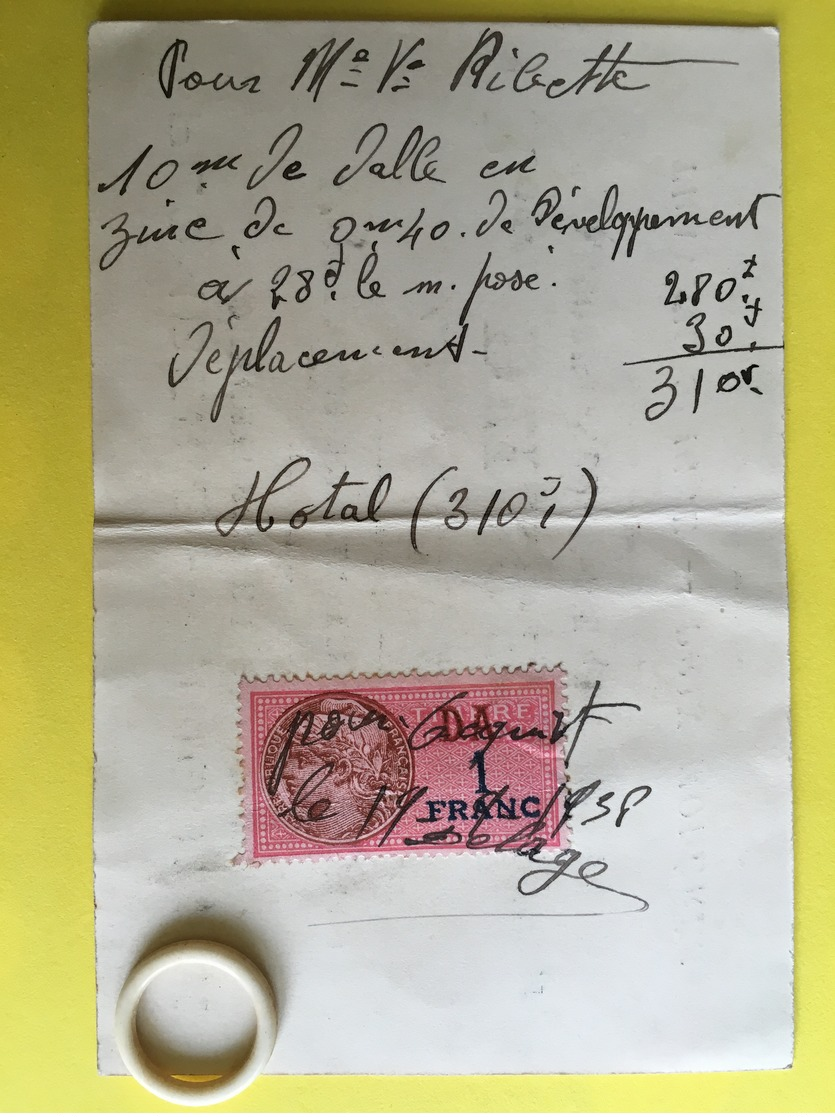 Pour Me Ve Ribette
10 m de dalle en
zinc de 0m40. de Développement
à 28f. le m. posé. 280f.
Déplacement- 30f.
310f.
Total (310f)
RÉPUBLIQUE FRANÇAISE
DA
1
FRANC
pour acquit
le 19 1938